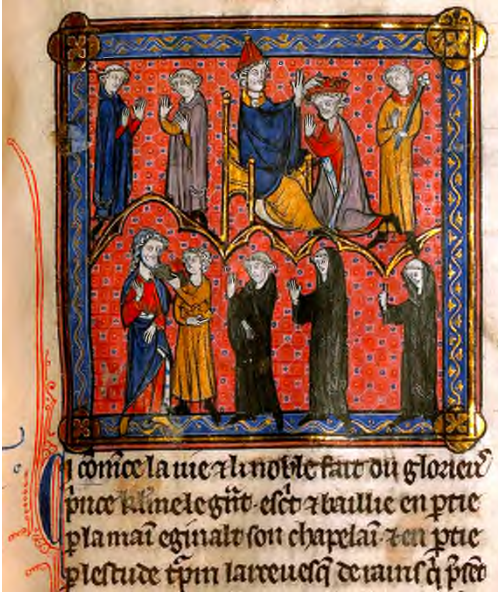 Ci cōmce la uie ⁊ li noble fait du glorieus
p̱nce kl̄mele gn̄t · esc̄t ⁊ baillie en ꝑtie
ꝑ la maī eginalt son chapelaī ⁊ en ꝑtie
ꝑ lestude tpin larceuesq̄ de rains